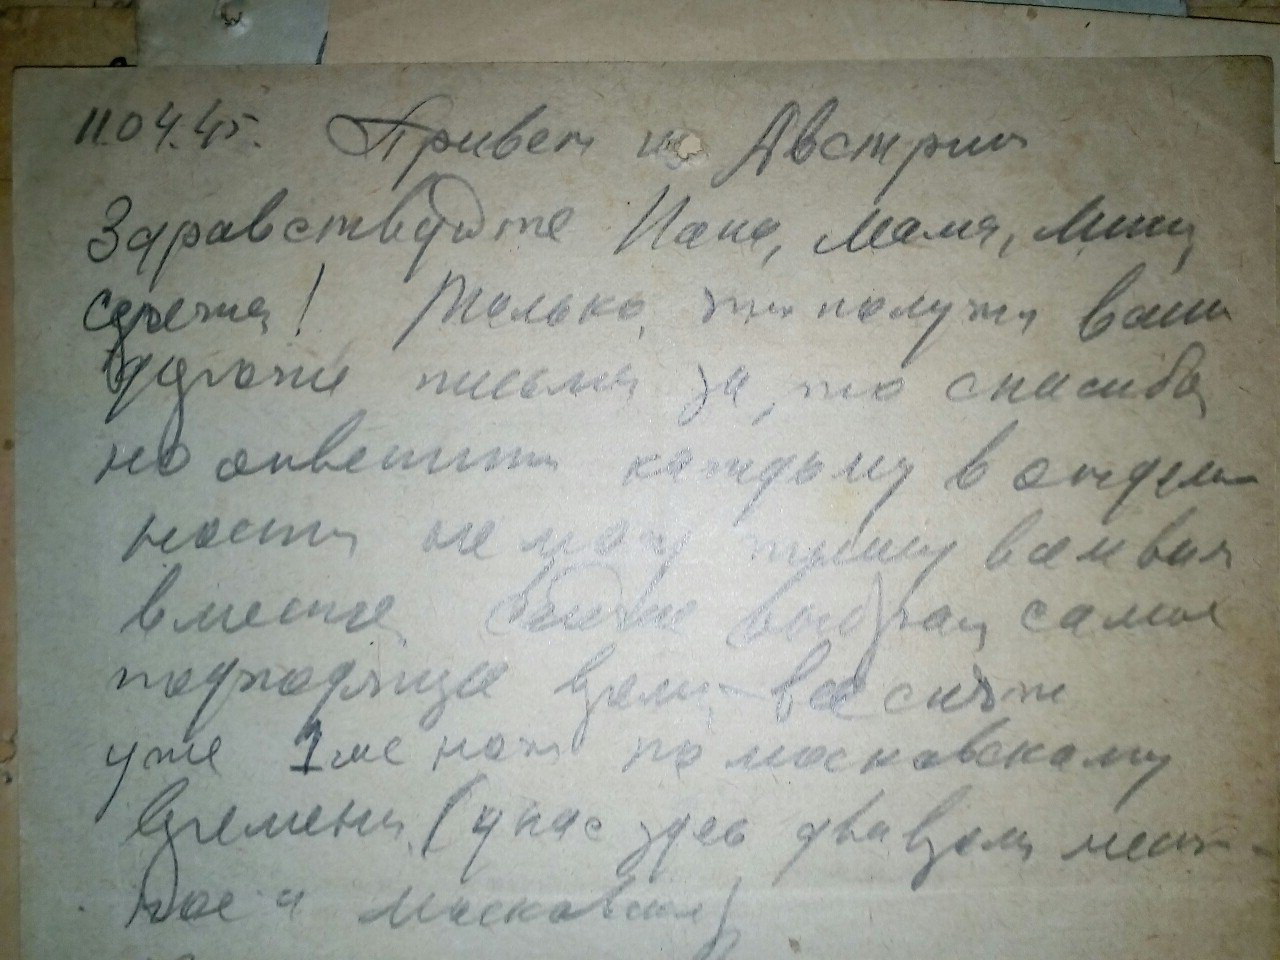 11.04.45. Привет из Австрии
Здравствуйте Папа, Мама, Миша,
Сережа! Только, что получил ваши
дорогие письма за, то спасибо,
но ответить каждому в отдель-
ности не могу пишу вам всем
вместе, время выбрал, самое
подходящие время все спят
уже 1 ме ноч по московскому
времени, (у нас здес два время мест-
ное и московское)